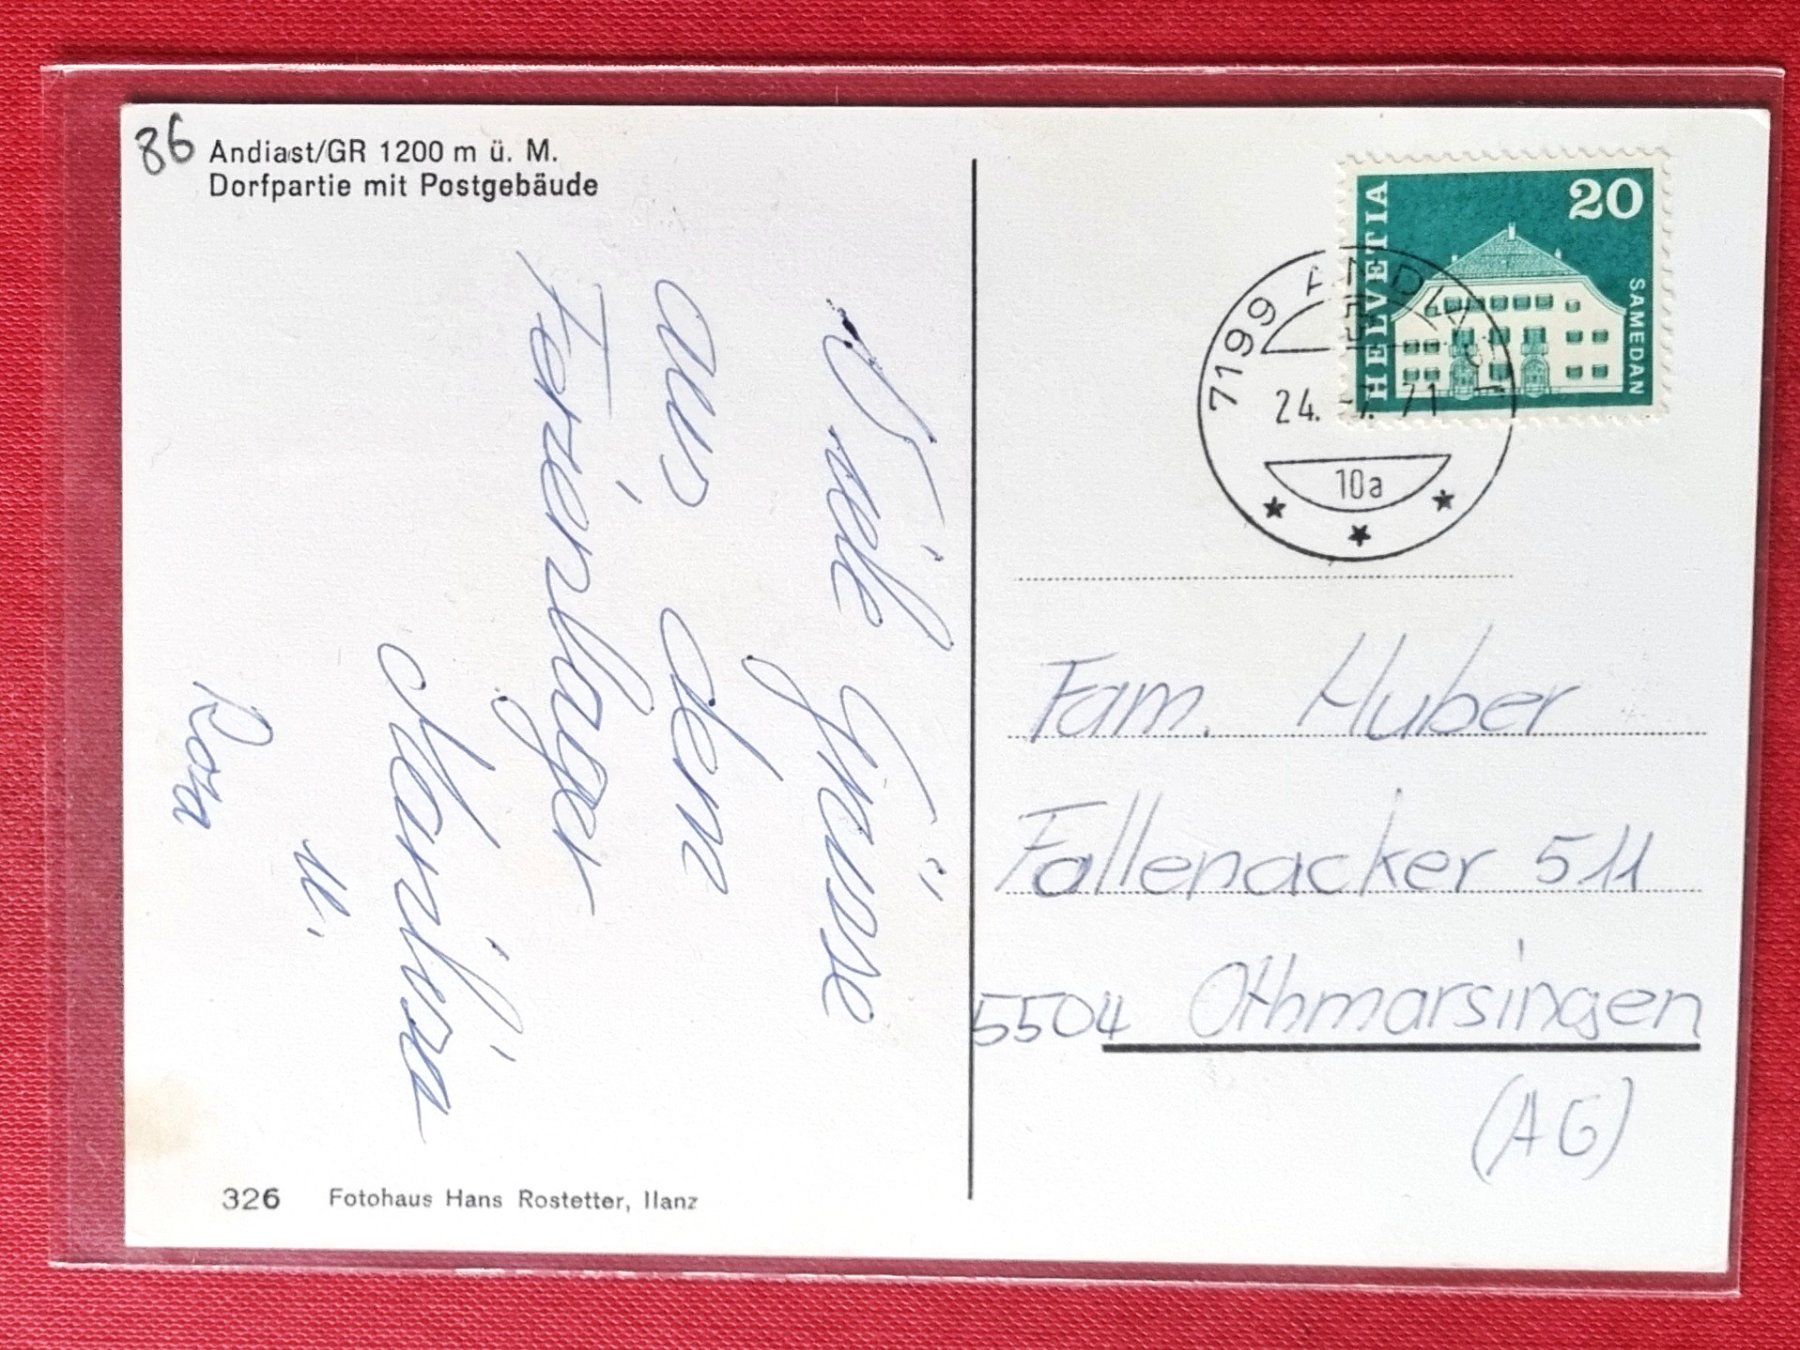 86
Andiast/GR 1200 m ü. M.
Dorfpartie mit Postgebäude
Viele Grüsse
aus dem
Ferienlager
Marilisa
u.
Rosa
326 Fotohaus Hans Rostetter, Ilanz
HELVETIA
20
SAMEDAN
7199 ANDIAST
24. -7. 71
10a
Fam. Huber
Fallenacker 511
5504 Othmarsingen
(AG)